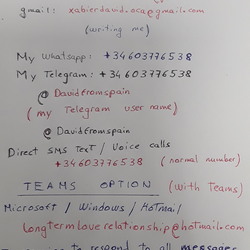 gmail: xabierdavid.oca@gmail.com
(writing me)
My Whatsapp: +34603776538
My Telegram: +34603776538
@Davidfromspain
(my Telegram user name)
@Davidfromspain
Direct SMS Text / Voice calls
+34603776538 (normal number)
TEAMS OPTION (with Teams)
Microsoft / Windows / HoTmail
Longtermloverelationship@hotmail.com
to respond to all messages